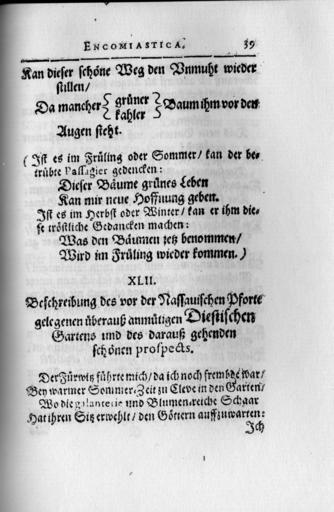 ENCOMIASTICA. 39
Kan dieser schöne Weg den Vnmuht wieder
stillen/
Da mancher { grüner kahler } Baum ihm vor den
Augen steht.
( Ist es im Früling oder Sommer/ kan der be-
trübte Passagier gedencken:
Dieser Bäume grünes Leben
Kan mir neue Hoffnung geben.
Ist es im Herbst oder Winter/ kan er ihm die-
se tröstliche Gedancken machen:
Was den Bäumen jetz benommen/
Wird im Früling wieder kommen. )
XLII.
Beschreibung des vor der Nassauischen Pforte
gelegenen überauß anmütigen Diestischen
Gartens und des darauß gehenden
schönen prospects.
Der Fürwitz führte mich/ da ich noch frembde war/
Bey warmer Sommer-Zeit zu Cleve in den Garten/
Wo die galanterie und Blumen-reiche Schaar
Hat ihren Sitz erwehlt/ den Göttern auffzuwarten:
Ich